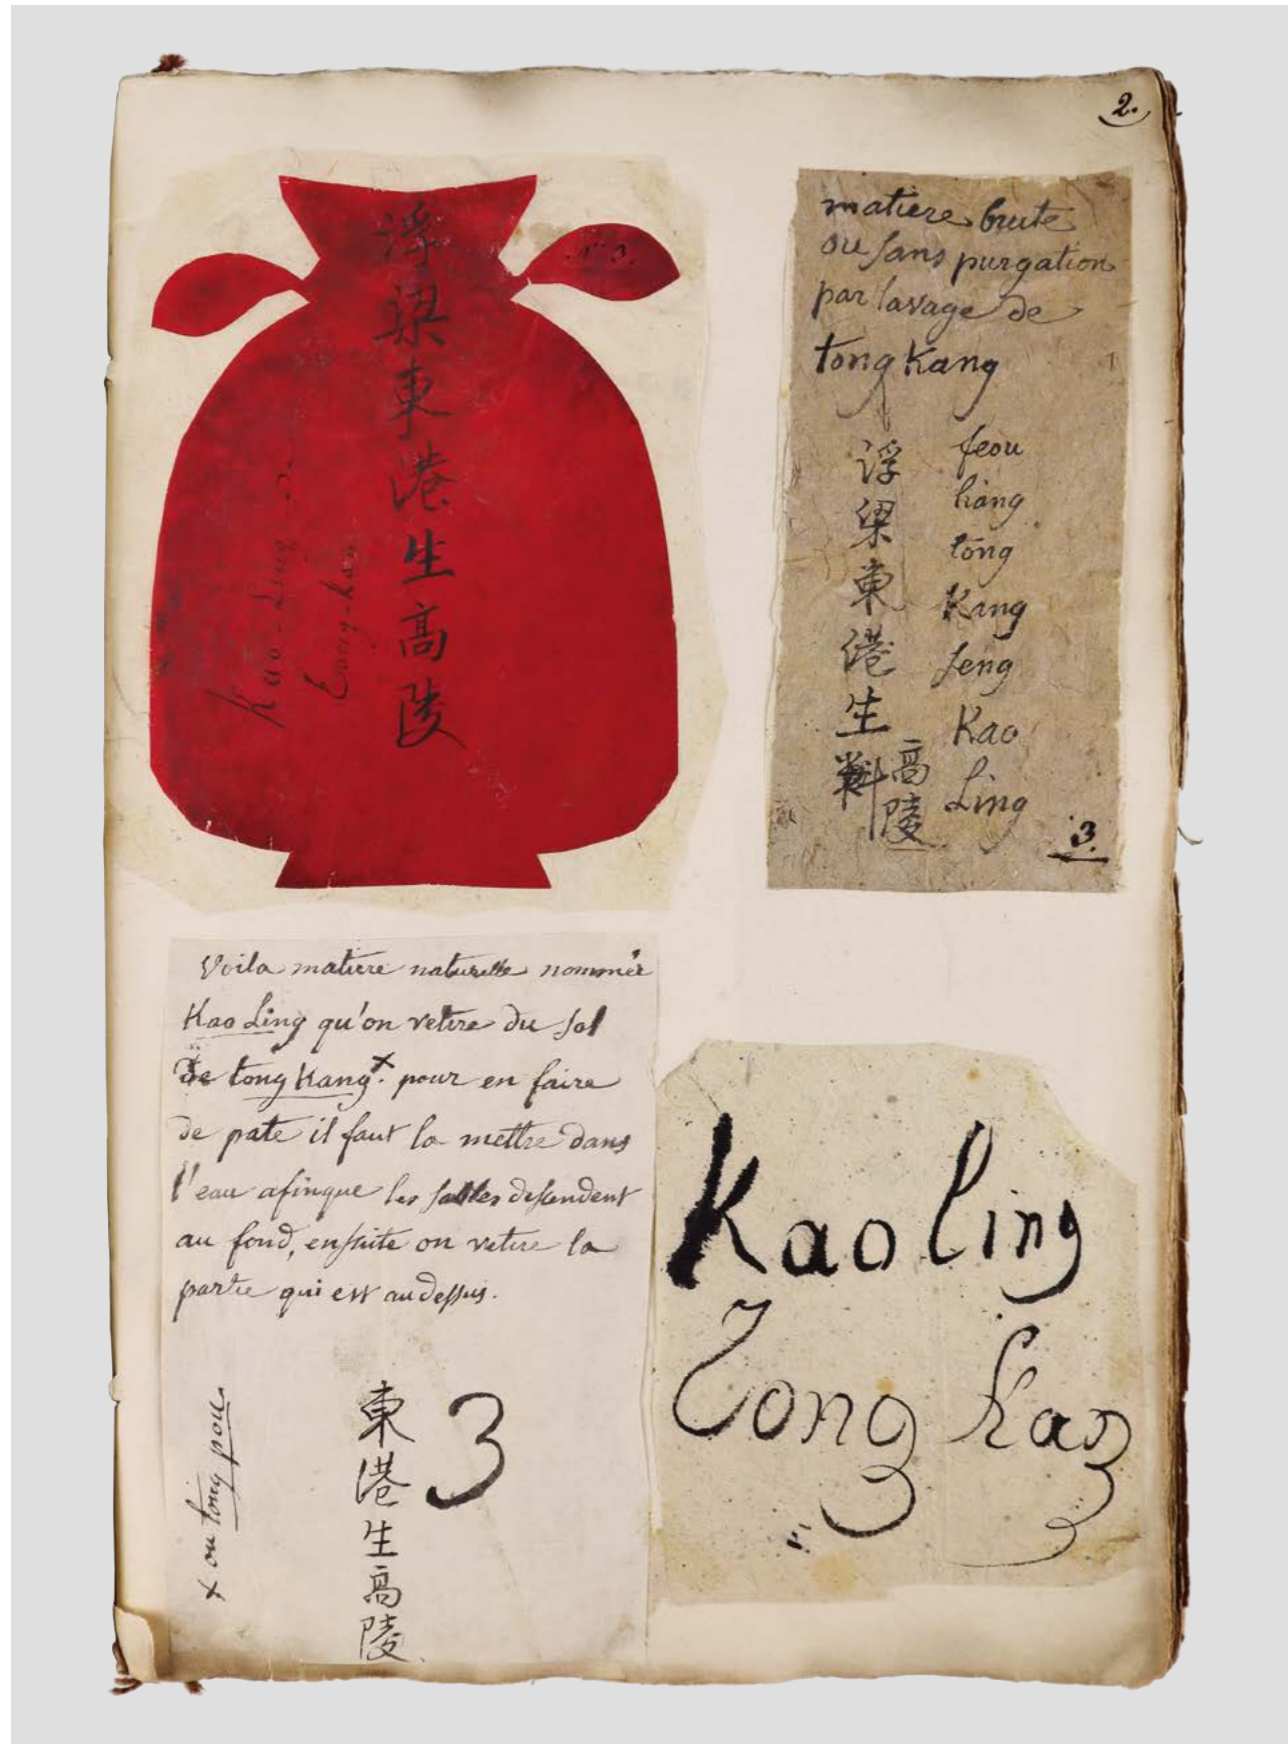 2.
浮梁東港生高陵
n° 3.
Kao-Ling
tong-kang
matiere brute
ou sans purgation
par lavage de
tong Kang
浮梁東港生
高陵
feou
liang
tong
Kang
seng
Kao
Ling
3.
Voila matiere naturelle nommée
Kao Ling qu'on retire du sol
de tong Kang x. pour en faire
de pate il faut la mettre dans
l'eau afinque les sables descendent
au fond, ensuite on retire la
partie qui est au dessus.
x ou tong pou
東港生高陵
3
Kaoling
Tong Kang